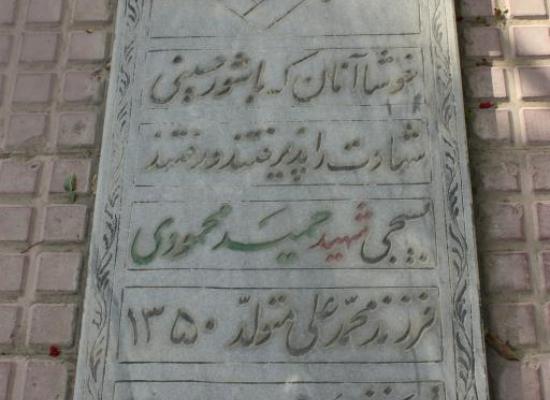 خوشا آنان که با شور حسینی
شهادت را پذیرفتند و رفتند
بسیجی شهید حمید محمودی
فرزند محمدعلی متولد ۱۳۵۰